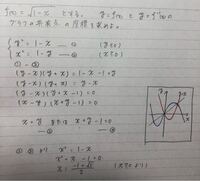 f(x) = √1-x とする。 y=f(x) と y=f⁻¹(x) の
グラフの共有点の座標を求める。
y² = 1-x —① (y≧0)
x² = 1-y —② (x≧0)
①-②
(y-x)(y+x) = 1-x-1+y
(y-x)(y+x) = y-x
(y-x)(y+x-1) = 0
(x-y)(x+y-1) = 0
x=y または x+y-1=0
—③ —④
②③より x² = 1-x
x²+x-1=0
x = (-1+√5)/2 (x≧0より)